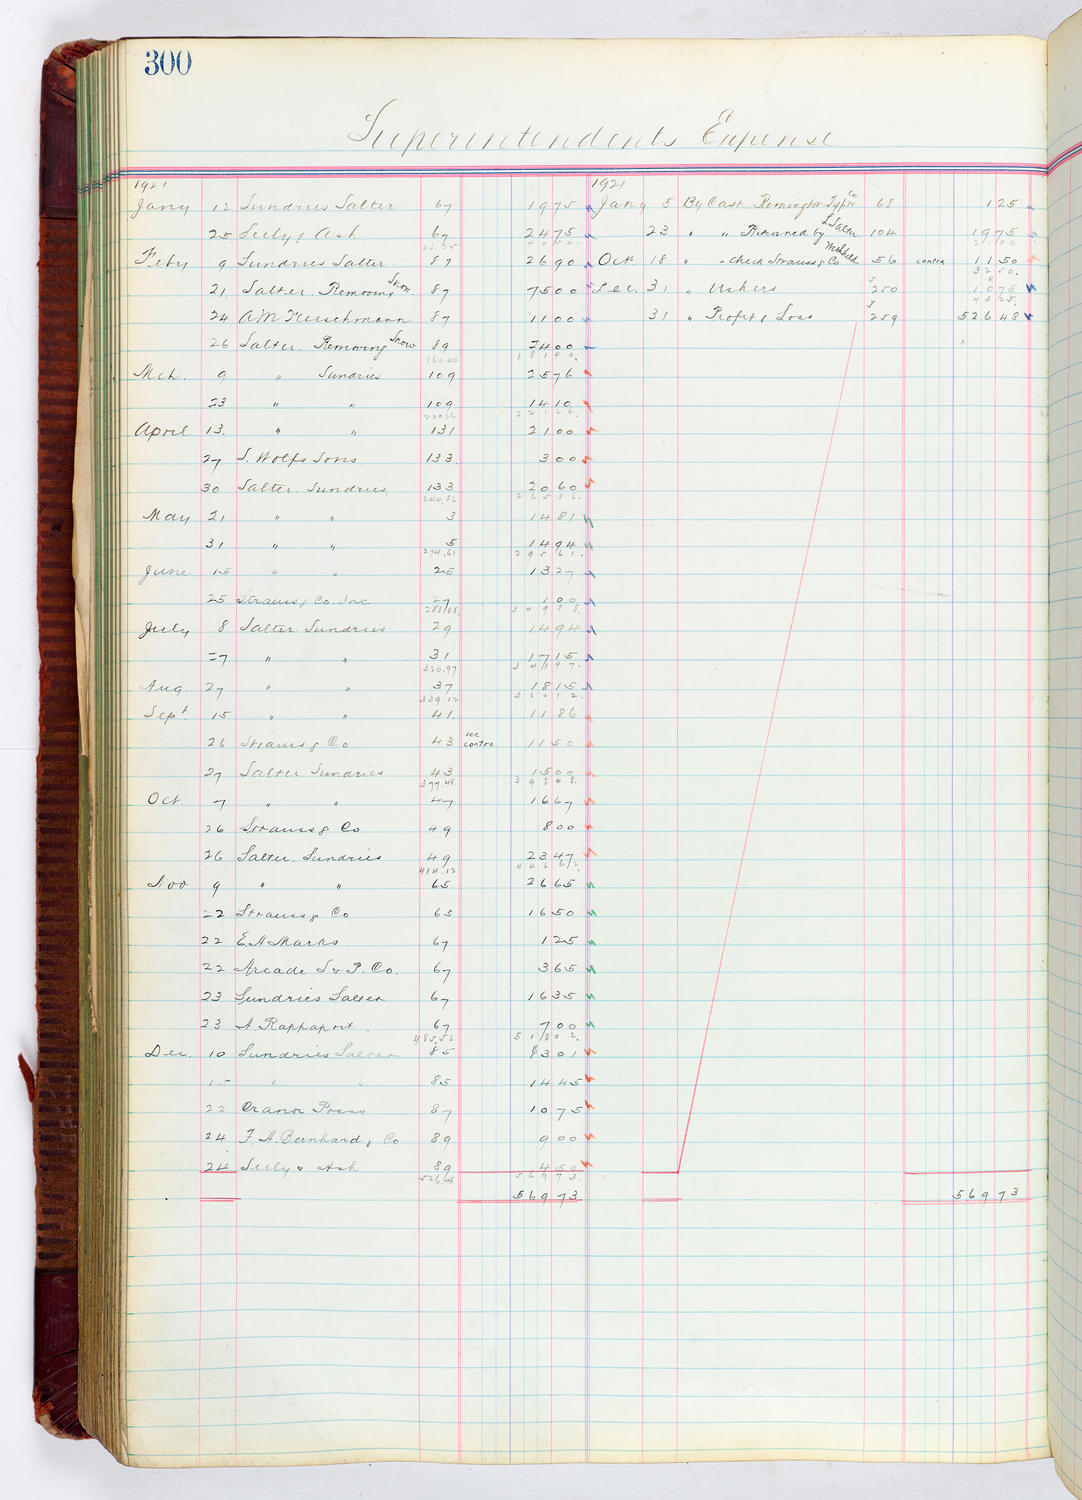 300
Superintendents Expense
1921
Jany 12 Sundries Salter 67 19 75
25 Seely & Ash 67 24 75
Feby 9 Sundries Salter 87 26 90
21 Salter Removing Snow 87 75 00
24 A M Fleischmann 87 11 00
26 Salter Removing Snow 89 24 00
160.40 181 40
Mch. 9 " Sundries 109 25 76
23 " " 109 14 10
200.26 221 26
April 13. " " 131 21 00
27 S. Wolfs Sons 133. 3 00
30 Salter Sundries 133 20 60
244.86 265 86
May 21 " " 3 14 81
31 " " 5 14 94
274.61 295 61
June 15 " " 25 13 27
25 Strauss & Co. Inc 27 1 00
288.88 309 88
July 8 Salter Sundries 29 14 94
27 " " 31 17 15
320.97 341 97
Aug. 27 " " 37 18 15
339.12 360 12
Sept 15 " " 41. 11 86
26 Strauss & Co 43 see contra 11 50
27 Salter Sundries 43 15 00
377.48 398 48
Oct. 7 " " 47 16 67
26 Strauss & Co 49 8 00
26 Salter Sundries 49 23 47
414.12 446 62
Nov 9 " " 65 26 65
22 Strauss & Co 65 16 50
22 E. A Marks 67 1 25
22 Arcade S & P. Co. 67 3 65
23 Sundries Salter 67 16 35
23 A. Rappaport 67 7 00
485.52 518 02
Dec. 10 Sundries Salter 85 13 01
15 " " 85 14 45
22 Cranor Press 87 10 75
24 F. A. Bernhard & Co 89 9 00
24 Seely & Ash 89 4 50
526.48 569 73
569 73
1921
Jany 5 By Cash Remington Typ'r Co 68 1 25
23 " " Returned by L Salter 104 19 75
21 00
Oct. 18 " " check Strauss & Co 56 contra 11 50
32 50
Dec. 31 " Ushers 250 10 75
43 25
31 " Profit & Loss 259 526 48
569 73